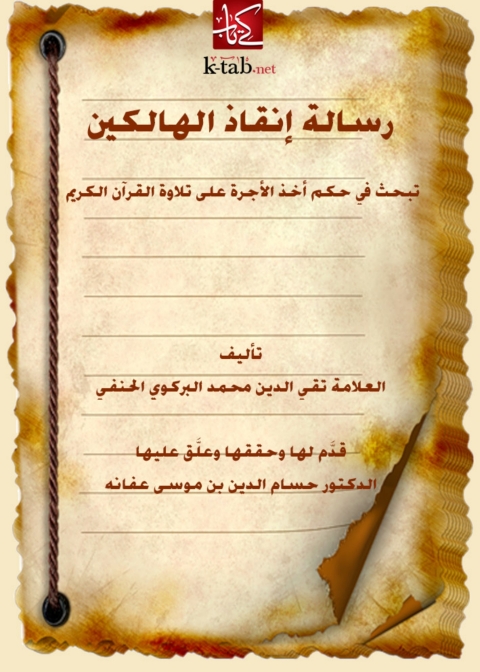 كتاب
k-tab.net
رسالة إنقاذ الهالكين
تبحث في حكم أخذ الأجرة على تلاوة القرآن الكريم
تأليف
العلامة تقي الدين محمد البركوي الحنفي
قدَّم لها وحققها وعلَّق عليها
الدكتور حسام الدين بن موسى عفانه